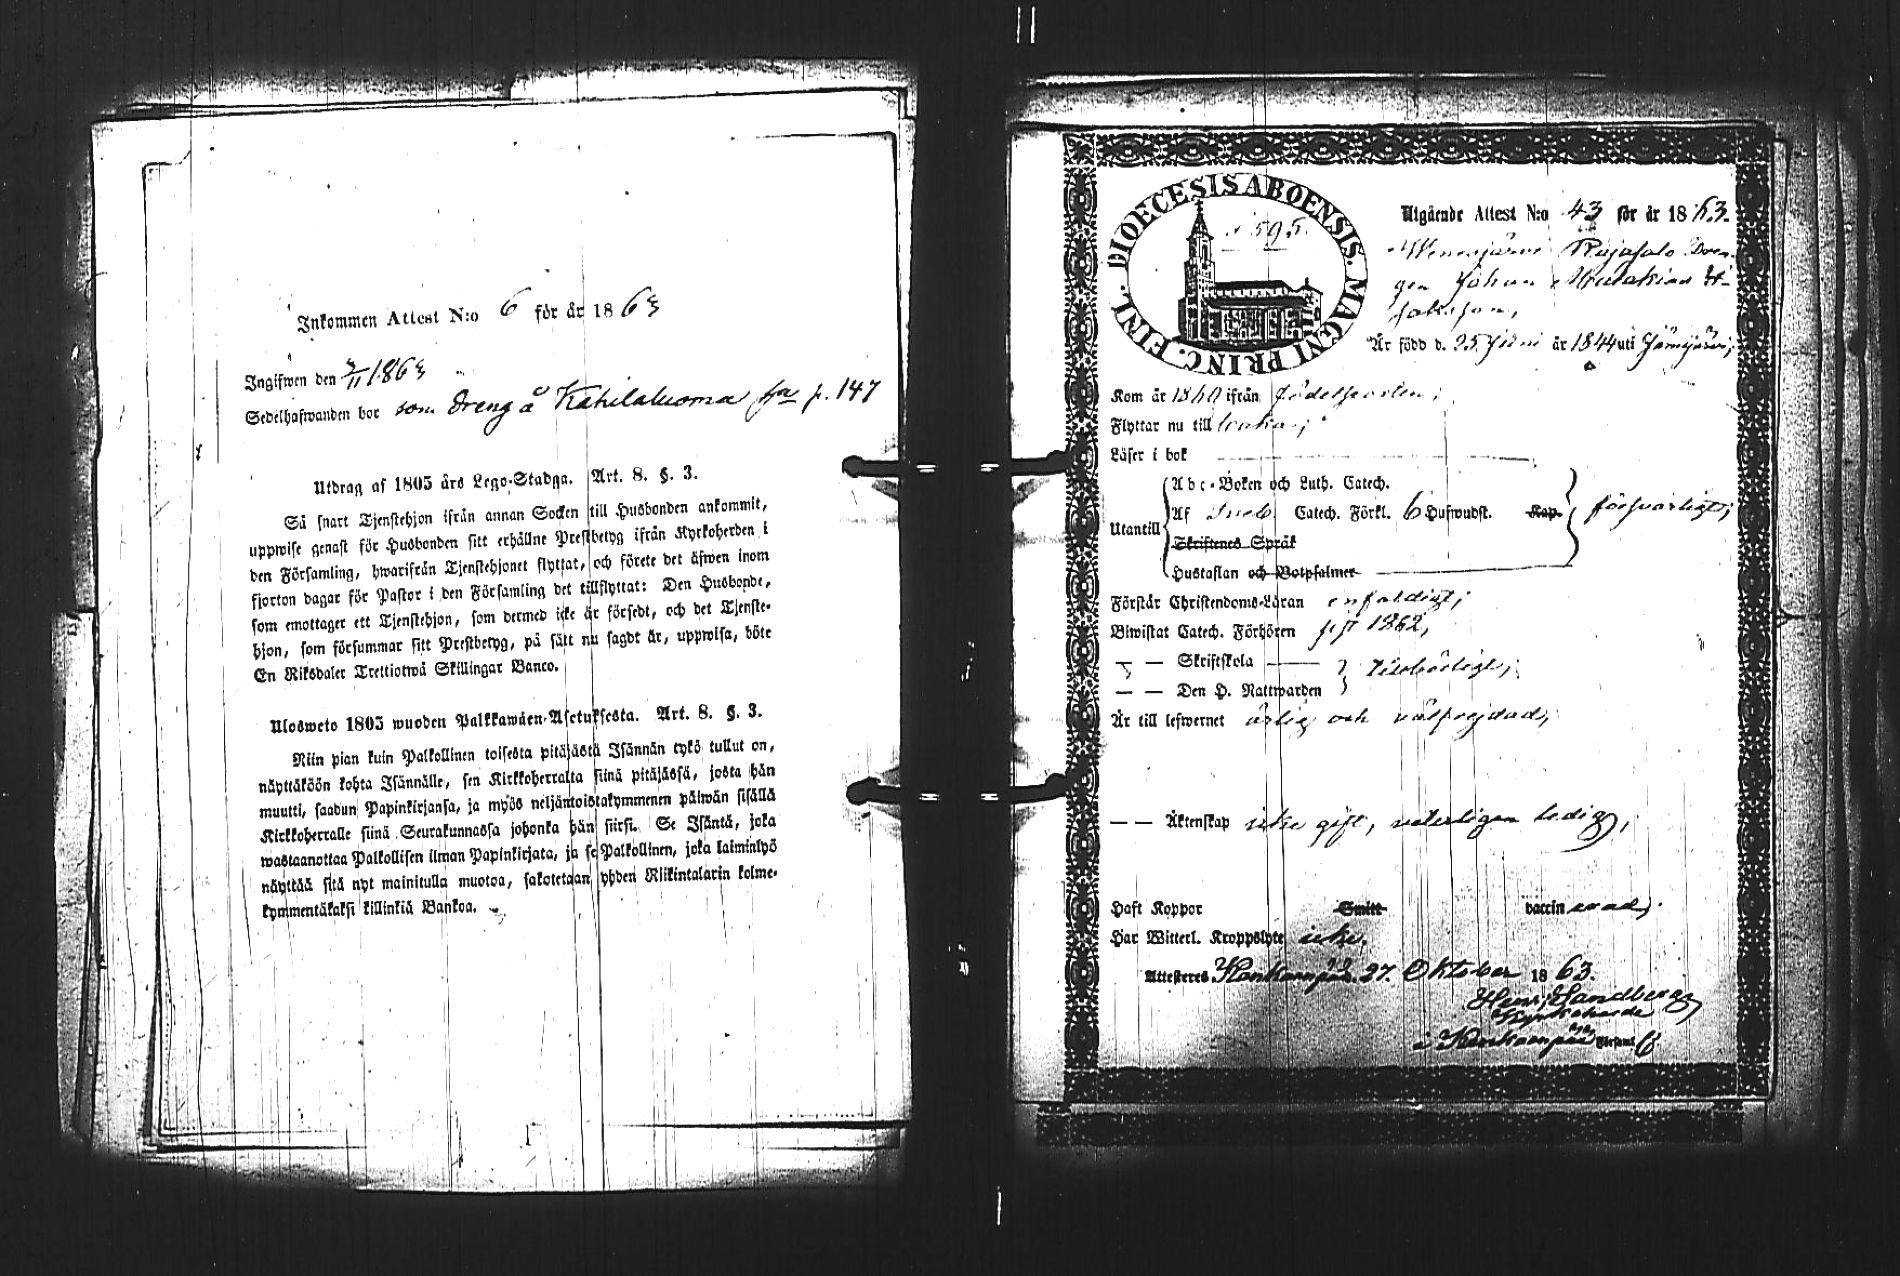 Inkommen Attest N:o 6 för år 1863
Ingifwen den 2/11 1863
Sedelhafwanden bor som Dreng å Kahilaluoma p. 147
Utdrag af 1805 års Lego-Stadga. Art. 8. §. 3.
Så snart Tjenstehjon ifrån annan Socken till Husbonden ankommit,
uppwise genast för Husbonden sitt erhållne Prestbetyg ifrån Kyrkoherden i
den Församling, hwarifrån Tjenstehjonet flyttat, och förete det äfwen inom
fjorton dagar för Pastor i den Församling det tillflyttat: Den Husbonde,
som emottager ett Tjenstehjon, som dermed icke är försedt, och det Tjenste-
hjon, som försummar sitt Prestbetyg, på sätt nu sagdt är, uppwisa, böte
En Riksdaler Trettiotwå Skillingar Banco.
Ulosweto 1805 wuoden Palkkawäen-Asetuksesta. Art. 8. §. 3.
Niin pian kuin Palkollinen toisesta pitäjästä Isännän tykö tullut on,
näyttäköön kohta Isännälle, sen Kirkkoherralta siinä pitäjässä, josta hän
muutti, saadun Papinkirjansa, ja myös neljäntoistakymmenen päiwän sisällä
Kirkkoherralle siinä Seurakunnassa johonka hän siirsi. Se Isäntä, joka
wastaanottaa Palkollisen ilman Papinkirjata, ja se Palkollinen, joka laiminlyö
näyttää sitä nyt mainitulla muotoa, sakotetaan yhden Riikintalarin kolme-
kymmentäkaksi killinkiä Bankoa.
DIOECESIS ABOENSIS. MAGNI PRINC. FINL.
595.
Utgående Attest N:o 43 för år 1863.
Rajasalo Dren-
gen Johan
Är född d. 25 Juni år 1844 uti Jämijärvi;
Kom år 1860 ifrån födelseorten;
Flyttar nu till
Läser i bok
Abc-Boken och Luth. Catech.
Utantill
Af Sveb. Catech. Förkl. 6 Hufwudst. Kap. försvarligt;
Skriftenes Språk
Hustaflan och Botpsalmer
Förstår Christendoms-Läran enfaldigt;
Biwistat Catech. Förhören sist 1862,
— — Skriftskola
— — Den H. Nattwarden
tillbörligt;
Är till lefwernet ärlig och välfrejdad,
— — Äktenskap icke gift, veterligen ledig,
Haft Koppor Smitt vaccinerad.
Har Witterl. Kroppslyte icke.
Attesteras Kankaanpää. 27. Oktober 1863.
Henr. Sandberg
Kyrkoherde
i Kankaanpää Församl.